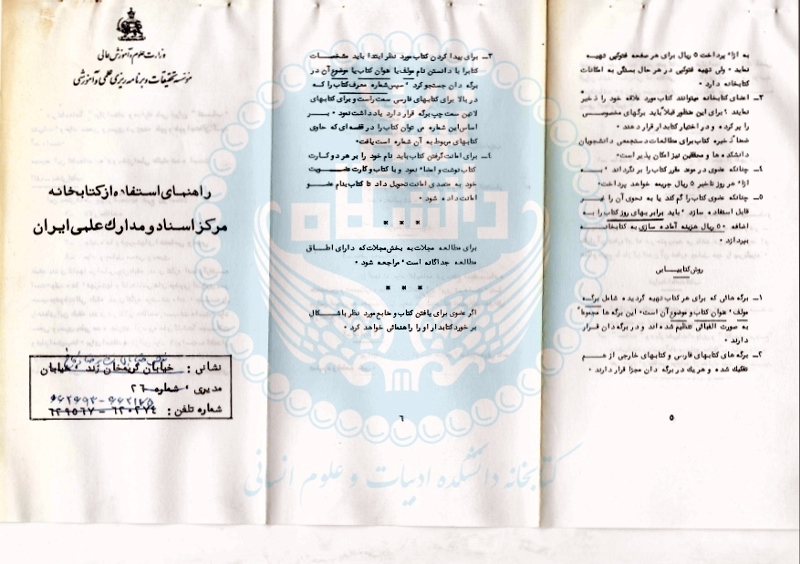 وزارت علوم و آموزش عالی
مؤسسه تحقیقات و برنامه ریزی علمی و آموزشی
راهنمای استفاده از کتابخانه
مرکز اسناد و مدارک علمی ایران
نشانی : خیابان کریمخان زند ، خیابان
مدیری ، شماره ۲۶
شماره تلفن : ۶۲۰۲۷۴ - ۶۲۹۵۶۷
به ازاء پرداخت ۵ ریال برای هر صفحه فتوکپی تهیه
نماید ۰ ولی تهیه فتوکپی در هر حال بستگی به امکانات
کتابخانه دارد ۰
۳ـ اعضای کتابخانه میتوانند کتاب مورد علاقه خود را ذخیر
نمایند ؛ برای این منظور قبلا باید برگهای مخصوصی
را پر کرده و در اختیار کتابدار قرار دهند ۰
ضمنا ذخیره کتاب برای مطالعات دستجمعی دانشجویان
دانشکده ها و محققین نیز امکان پذیر است ۰
۴ـ چنانکه عضوی در موعد مقرر کتاب را بر نگرداند ، به
ازاء هر روز تاخیر ۵ ریال جریمه خواهد پرداخت ۰
۵ـ چنانکه عضوی کتاب را گم کند یا به نحوی آن را غیر
قابل استفاده سازد ، باید برابر بهای روز کتاب را به
اضافه ۵۰ ریال هزینه آماده سازی به کتابخانه
بپردازد ۰
روش کتابیابی
۱ـ برگه هائی که برای هر کتاب تهیه گردیده شامل برگه
مولف ، عنوان کتاب و موضوع آن است ، این برگه ها مجموعا
به صورت الفبائی تنظیم شده اند و در برگه دان قرار
دارند ۰
۲ـ برگه های کتابهای فارسی و کتابهای خارجی از هم
تفکیک شده و هر یک در برگه دان مجزا قرار دارند ۰
۵
۳ـ برای پیدا کردن کتاب مورد نظر ابتدا باید مشخصات
کتاب را با دانستن نام مولف یا عنوان کتاب یا موضوع آن در
برگه دان جستجو کرد ، سپس شماره معرف کتاب را که
در بالا برای کتابهای فارسی سمت راست و برای کتابهای
لاتین سمت چپ برگه قرار دارد یادداشت نمود ۰ بر
اساس این شماره می توان کتاب را در قفسه ای که حاوی
کتابهای مربوط به آن شماره است یافت ۰
۴ـ برای امانت گرفتن کتاب باید نام خود را بر هر دو کارت
کتاب نوشت و امضاء نمود و با کتاب و کارت عضویت
خود به متصدی امانت تحویل داد تا کتاب بنام عضو
امانت داده شود ۰
* * *
برای مطالعه مجلات به بخش مجلات که دارای اطاق
مطالعه جداگانه است ، مراجعه شود ۰
* * *
اگر عضوی برای یافتن کتاب و منابع مورد نظر با اشکال
بر خورد کتابدار او را راهنمائی خواهد کرد ۰
۶
کتابخانه دانشکده ادبیات و علوم انسانی